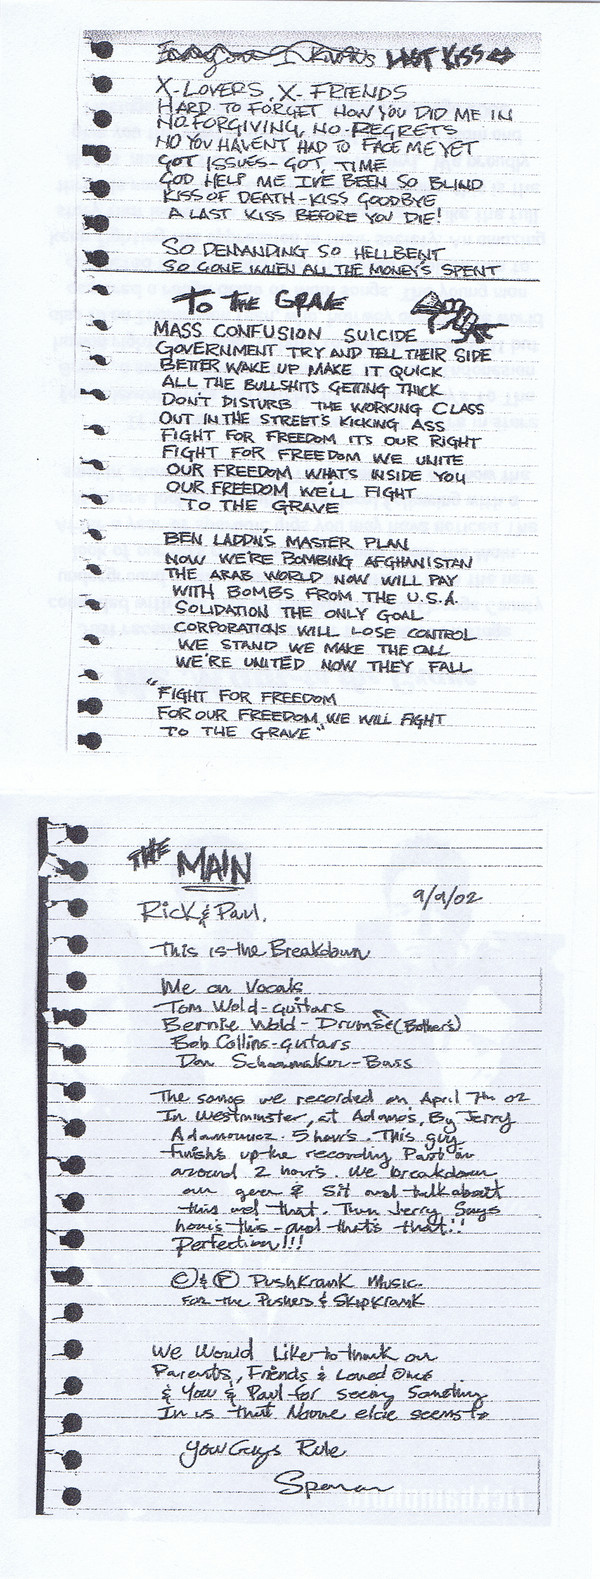 Last Kiss
X-LOVERS, X-FRIENDS
HARD TO FORGET HOW YOU DID ME IN
NO FORGIVING, NO-REGRETS
NO YOU HAVENT HAD TO FACE ME YET
GOT ISSUES-GOT, TIME
GOD HELP ME I'VE BEEN SO BLIND
KISS OF DEATH-KISS GOODBYE
A LAST KISS BEFORE YOU DIE!
SO DEMANDING SO HELLBENT
SO GONE WHEN ALL THE MONEY'S SPENT
TO THE GRAVE
MASS CONFUSION SUICIDE
GOVERNMENT TRY AND TELL THEIR SIDE
BETTER WAKE UP MAKE IT QUICK
ALL THE BULLSHITS GETTING THICK
DON'T DISTURB THE WORKING CLASS
OUT IN THE STREET'S KICKING ASS
FIGHT FOR FREEDOM ITS OUR RIGHT
FIGHT FOR FREEDOM WE UNITE
OUR FREEDOM WHATS INSIDE YOU
OUR FREEDOM WE'LL FIGHT
TO THE GRAVE
BEN LADDNS MASTER PLAN
NOW WE'RE BOMBING AFGHANISTAN
THE ARAB WORLD NOW WILL PAY
WITH BOMBS FROM THE U.S.A.
SOLIDATION THE ONLY GOAL
CORPORATIONS WILL LOSE CONTROL
WE STAND WE MAKE THE CALL
WE'RE UNITED NOW THEY FALL
"FIGHT FOR FREEDOM
FOR OUR FREEDOM WE WILL FIGHT
TO THE GRAVE"
THE MAIN
9/9/02
Rick & Paul,
This is the Breakdown
Me on Vocals
Tom Wold-guitars
Bernie Wold-Drums (Bother's)
Bob Collins-guitars
Don Schoomaker-Bass
The songs we recorded on April 7th 02
In Westminster, at Adamos, By Jerry
Adamowicz. 5 hours. This guy
finishs up the recording Part in
around 2 hours. We breakdown
our gear & Sit and talk about
this and that. Then Jerry Says
how's this-and that's that!!
Perfection!!!
© & ℗ PushKrank Music.
For the Pushers & SkipKrank
We Would Like to thank our
Parents, Friends & Loved Once
& You & Paul for seeing Something
In us that Noone else seems to
You Guys Rule
Spencer